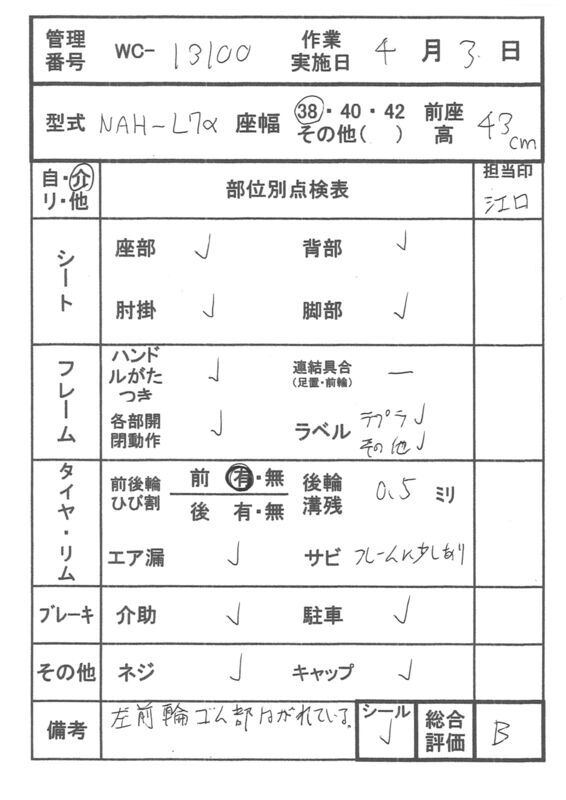 管理番号 WC- 13100 作業実施日 4 月 3 日
型式 NAH-L7α 座幅 38・40・42 その他( ) 前座高 43cm
自・介 リ・他 部位別点検表 担当印 江口
シート
座部 ✓ 背部 ✓
肘掛 ✓ 脚部 ✓
フレーム
ハンドルがたつき ✓ 連結具合(足置・前輪) ー
各部開閉動作 ✓ ラベル テプラ✓ その他✓
タイヤ・リム
前後輪ひび割 前 有・無 後 有・無 後輪溝残 0.5 ミリ
エア漏 ✓ サビ フレームに少しあり
ブレーキ 介助 ✓ 駐車 ✓
その他 ネジ ✓ キャップ ✓
備考 左前輪ゴム部はがれている。 シール ✓ 総合評価 B